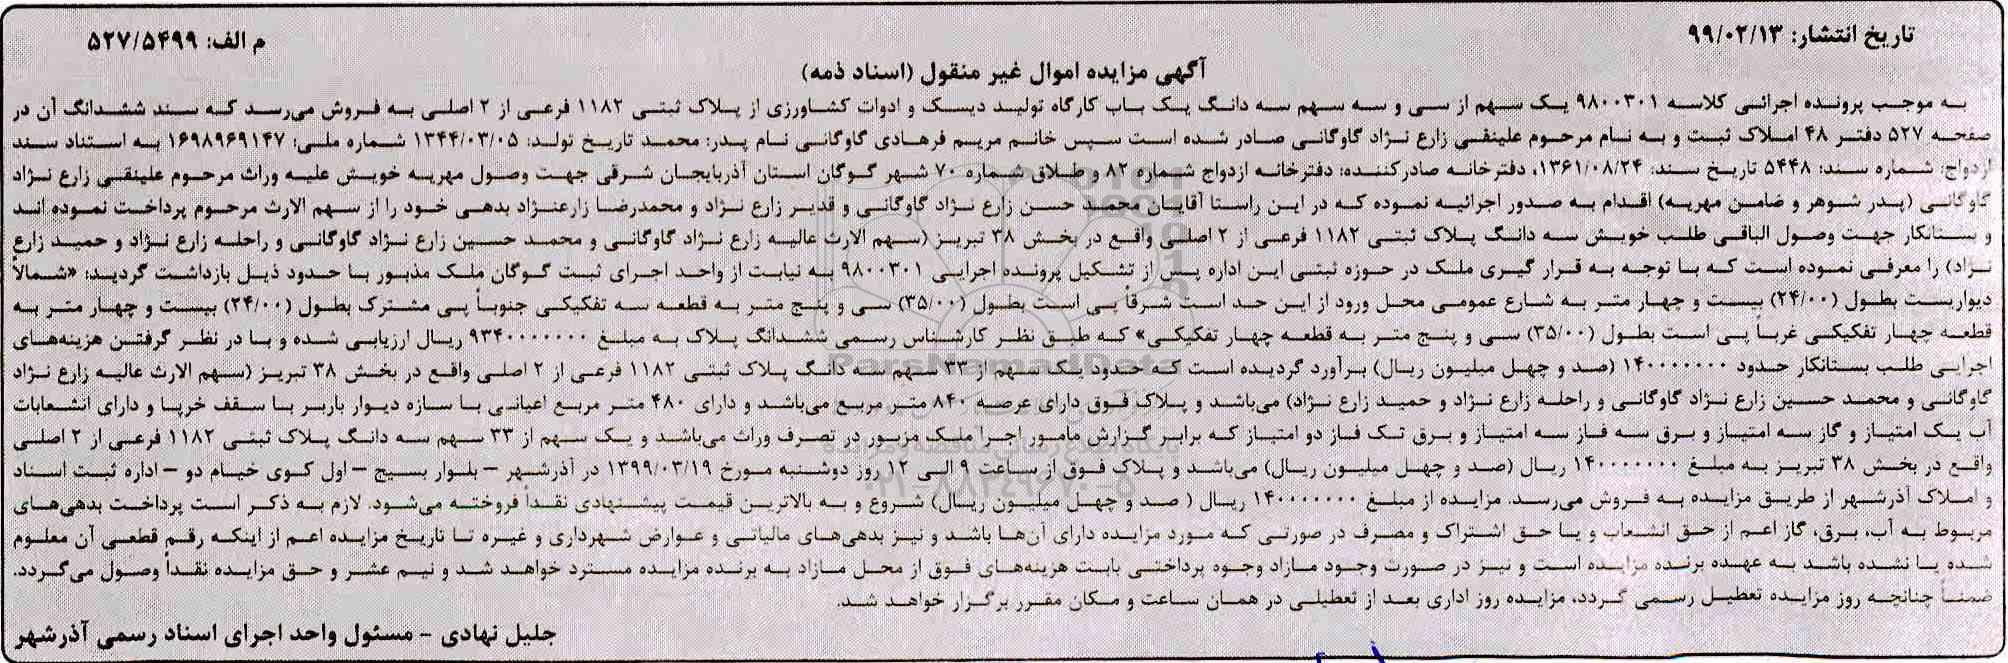 تاریخ انتشار: ۹۹/۰۲/۱۳
م الف: ۵۲۷/۵۴۹۹
آگهی مزایده اموال غیر منقول (اسناد ذمه)
به موجب پرونده اجرائی کلاسه ۹۸۰۰۳۰۱ یک سهم از سی و سه سهم سه دانگ یک باب کارگاه تولید دیسک و ادوات کشاورزی از پلاک ثبتی ۱۱۸۲ فرعی از ۲ اصلی به فروش می‌رسد که سند ششدانگ آن در
صفحه ۵۲۷ دفتر ۴۸ املاک ثبت و به نام مرحوم علینقی زارع نژاد گاوگانی صادر شده است سپس خانم مریم فرهادی گاوگانی نام پدر: محمد تاریخ تولد: ۱۳۴۴/۰۳/۰۵ شماره ملی: ۱۶۹۸۹۶۹۱۴۷ به استناد سند
ازدواج: شماره سند: ۵۴۴۸ تاریخ سند: ۱۳۶۱/۰۸/۲۴، دفترخانه صادرکننده: دفترخانه ازدواج شماره ۸۲ و طلاق شماره ۷۰ شهر گوگان استان آذربایجان شرقی جهت وصول مهریه خویش علیه وراث مرحوم علینقی زارع نژاد
گاوگانی (پدر شوهر و ضامن مهریه) اقدام به صدور اجرائیه نموده که در این راستا آقایان محمد حسن زارع نژاد گاوگانی و قدیر زارع نژاد و محمدرضا زارعنژاد بدهی خود را از سهم الارث مرحوم پرداخت نموده اند
و بستانکار جهت وصول الباقی طلب خویش سه دانگ پلاک ثبتی ۱۱۸۲ فرعی از ۲ اصلی واقع در بخش ۳۸ تبریز (سهم الارث عالیه زارع نژاد گاوگانی و محمد حسین زارع نژاد گاوگانی و راحله زارع نژاد و حمید زارع
نژاد) را معرفی نموده است که با توجه به قرار گیری ملک در حوزه ثبتی این اداره پس از تشکیل پرونده اجرایی ۹۸۰۰۳۰۱ به نیابت از واحد اجرای ثبت گوگان ملک مذبور با حدود ذیل بازداشت گردید: «شمالاً
دیواریست بطول (۲۴/۰۰) بیست و چهار متر به شارع عمومی محل ورود از این حد است شرقاً پی است بطول (۳۵/۰۰) سی و پنج متر به قطعه سه تفکیکی جنوباً پی مشترک بطول (۲۴/۰۰) بیست و چهار متر به
قطعه چهار تفکیکی غرباً پی است بطول (۳۵/۰۰) سی و پنج متر به قطعه چهار تفکیکی» که طبق نظر کارشناس رسمی ششدانگ پلاک به مبلغ ۹۳۴۰۰۰۰۰۰۰ ریال ارزیابی شده و با در نظر گرفتن هزینه‌های
اجرایی طلب بستانکار حدود ۱۴۰۰۰۰۰۰۰ (صد و چهل میلیون ریال) برآورد گردیده است که حدود یک سهم از ۳۳ سهم سه دانگ پلاک ثبتی ۱۱۸۲ فرعی از ۲ اصلی واقع در بخش ۳۸ تبریز (سهم الارث عالیه زارع نژاد
گاوگانی و محمد حسین زارع نژاد گاوگانی و راحله زارع نژاد و حمید زارع نژاد) می‌باشد و پلاک فوق دارای عرصه ۸۴۰ متر مربع می‌باشد و دارای ۴۸۰ متر مربع اعیانی با سازه دیوار باربر با سقف خرپا و دارای انشعابات
آب یک امتیاز و گاز سه امتیاز و برق سه فاز سه امتیاز و برق تک فاز دو امتیاز که برابر گزارش مامور اجرا ملک مزبور در تصرف وراث می‌باشد و یک سهم از ۳۳ سهم سه دانگ پلاک ثبتی ۱۱۸۲ فرعی از ۲ اصلی
واقع در بخش ۳۸ تبریز به مبلغ ۱۴۰۰۰۰۰۰۰ ریال (صد و چهل میلیون ریال) می‌باشد و پلاک فوق از ساعت ۹ الی ۱۲ روز دوشنبه مورخ ۱۳۹۹/۰۳/۱۹ در آذرشهر – بلوار بسیج – اول کوی خیام دو – اداره ثبت اسناد
و املاک آذرشهر از طریق مزایده به فروش می‌رسد. مزایده از مبلغ ۱۴۰۰۰۰۰۰۰ ریال ( صد و چهل میلیون ریال) شروع و به بالاترین قیمت پیشنهادی نقداً فروخته می‌شود. لازم به ذکر است پرداخت بدهی‌های
مربوط به آب، برق، گاز اعم از حق انشعاب و یا حق اشتراک و مصرف در صورتی که مورد مزایده دارای آن‌ها باشد و نیز بدهی‌های مالیاتی و عوارض شهرداری و غیره تا تاریخ مزایده اعم از اینکه رقم قطعی آن معلوم
شده یا نشده باشد به عهده برنده مزایده است و نیز در صورت وجود مازاد وجوه پرداختی بابت هزینه‌های فوق از محل مازاد به برنده مزایده مسترد خواهد شد و نیم عشر و حق مزایده نقداً وصول می‌گردد.
ضمناً چنانچه روز مزایده تعطیل رسمی گردد، مزایده روز اداری بعد از تعطیلی در همان ساعت و مکان مقرر برگزار خواهد شد.
جلیل نهادی – مسئول واحد اجرای اسناد رسمی آذرشهر
ParsNamadData
۰۲۱-۸۸۳۴۹۶۷۰-۵